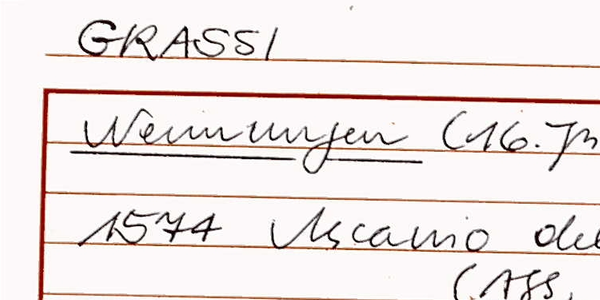 GRASSI
Wemmingen (16. Jh
1574 Ascanio del
(Ass.